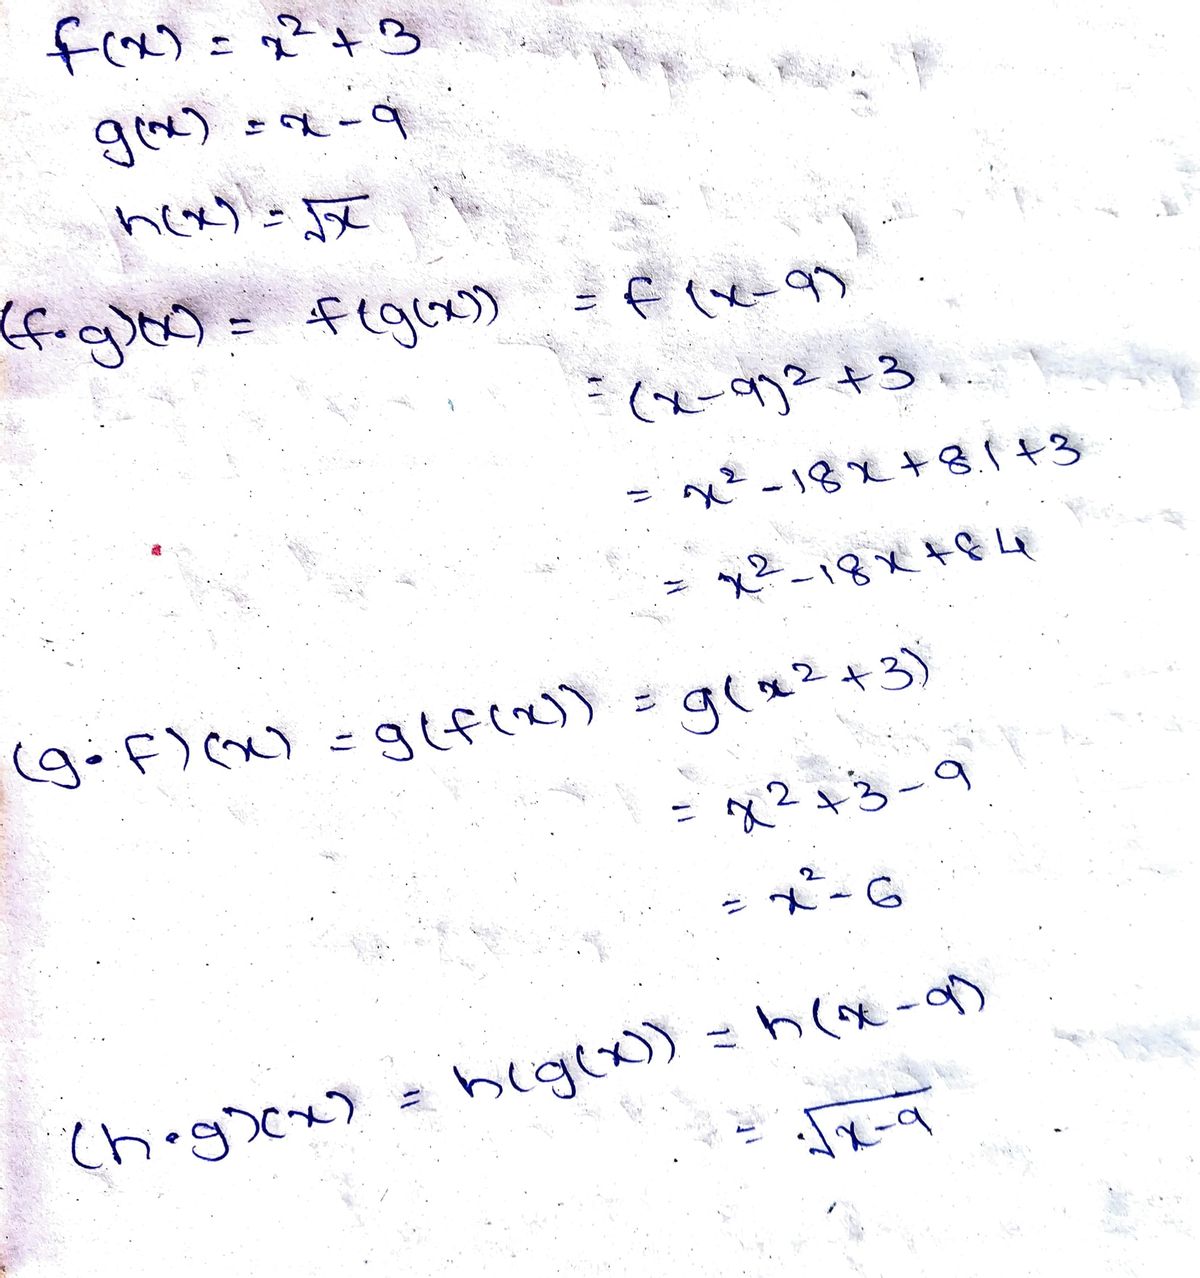 f(x) = x² + 3
g(x) = x - 9
h(x) = √x
(f∘g)(x) = f(g(x)) = f(x-9)
= (x-9)² + 3
= x² - 18x + 81 + 3
= x² - 18x + 84
(g∘f)(x) = g(f(x)) = g(x² + 3)
= x² + 3 - 9
= x² - 6
(h∘g)(x) = h(g(x)) = h(x-9)
= √(x-9)